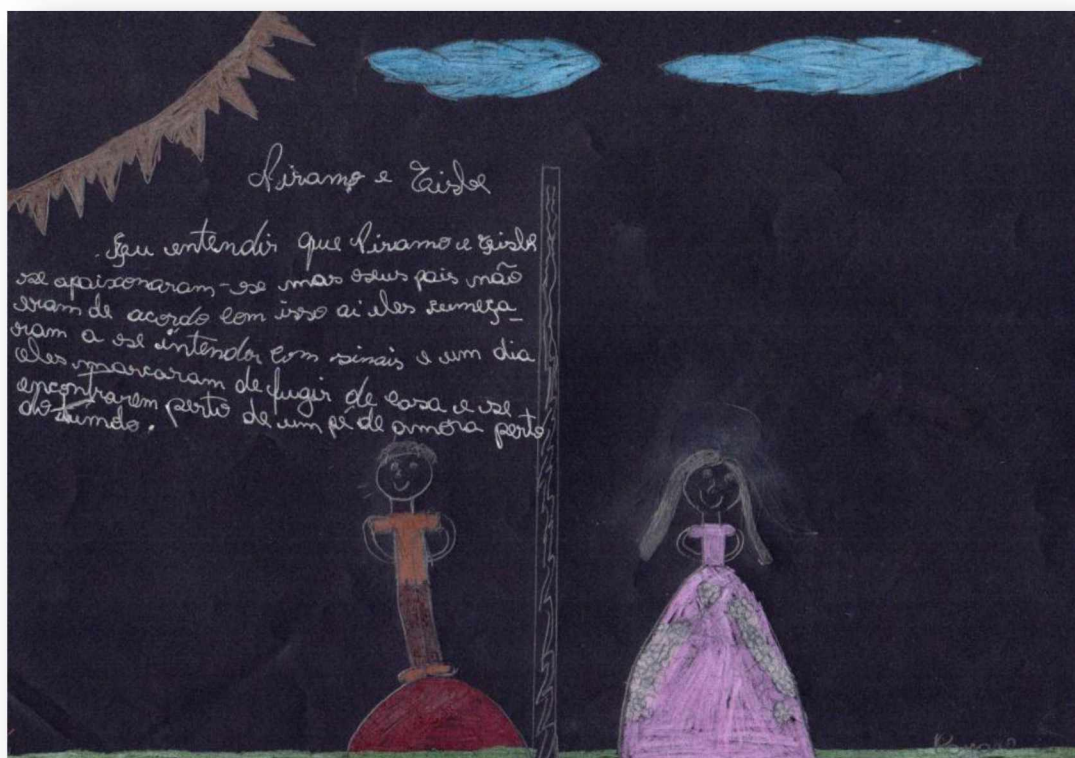 Piramo e Tisbe
Eu entendir que Piramo e Tisbe
se apaixonaram-se mas seus pais não
eram de acordo com isso ai eles começa_
ram a se intender com sinais e um dia
eles marcaram de fugir de casa e se
encontrarem perto de um pé de amora perto
do